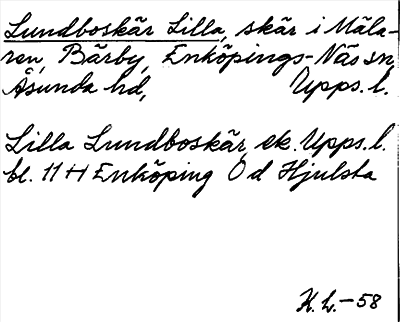 Lundboskär Lilla, skär i Mäla-
ren, Bärby, Enköpings-Näs sn,
Åsunda hd, Upps. l.
Lilla Lundboskär, ek. Upps. l.
bl. 11 H Enköping Ö d Hjulsta
K. L. -58